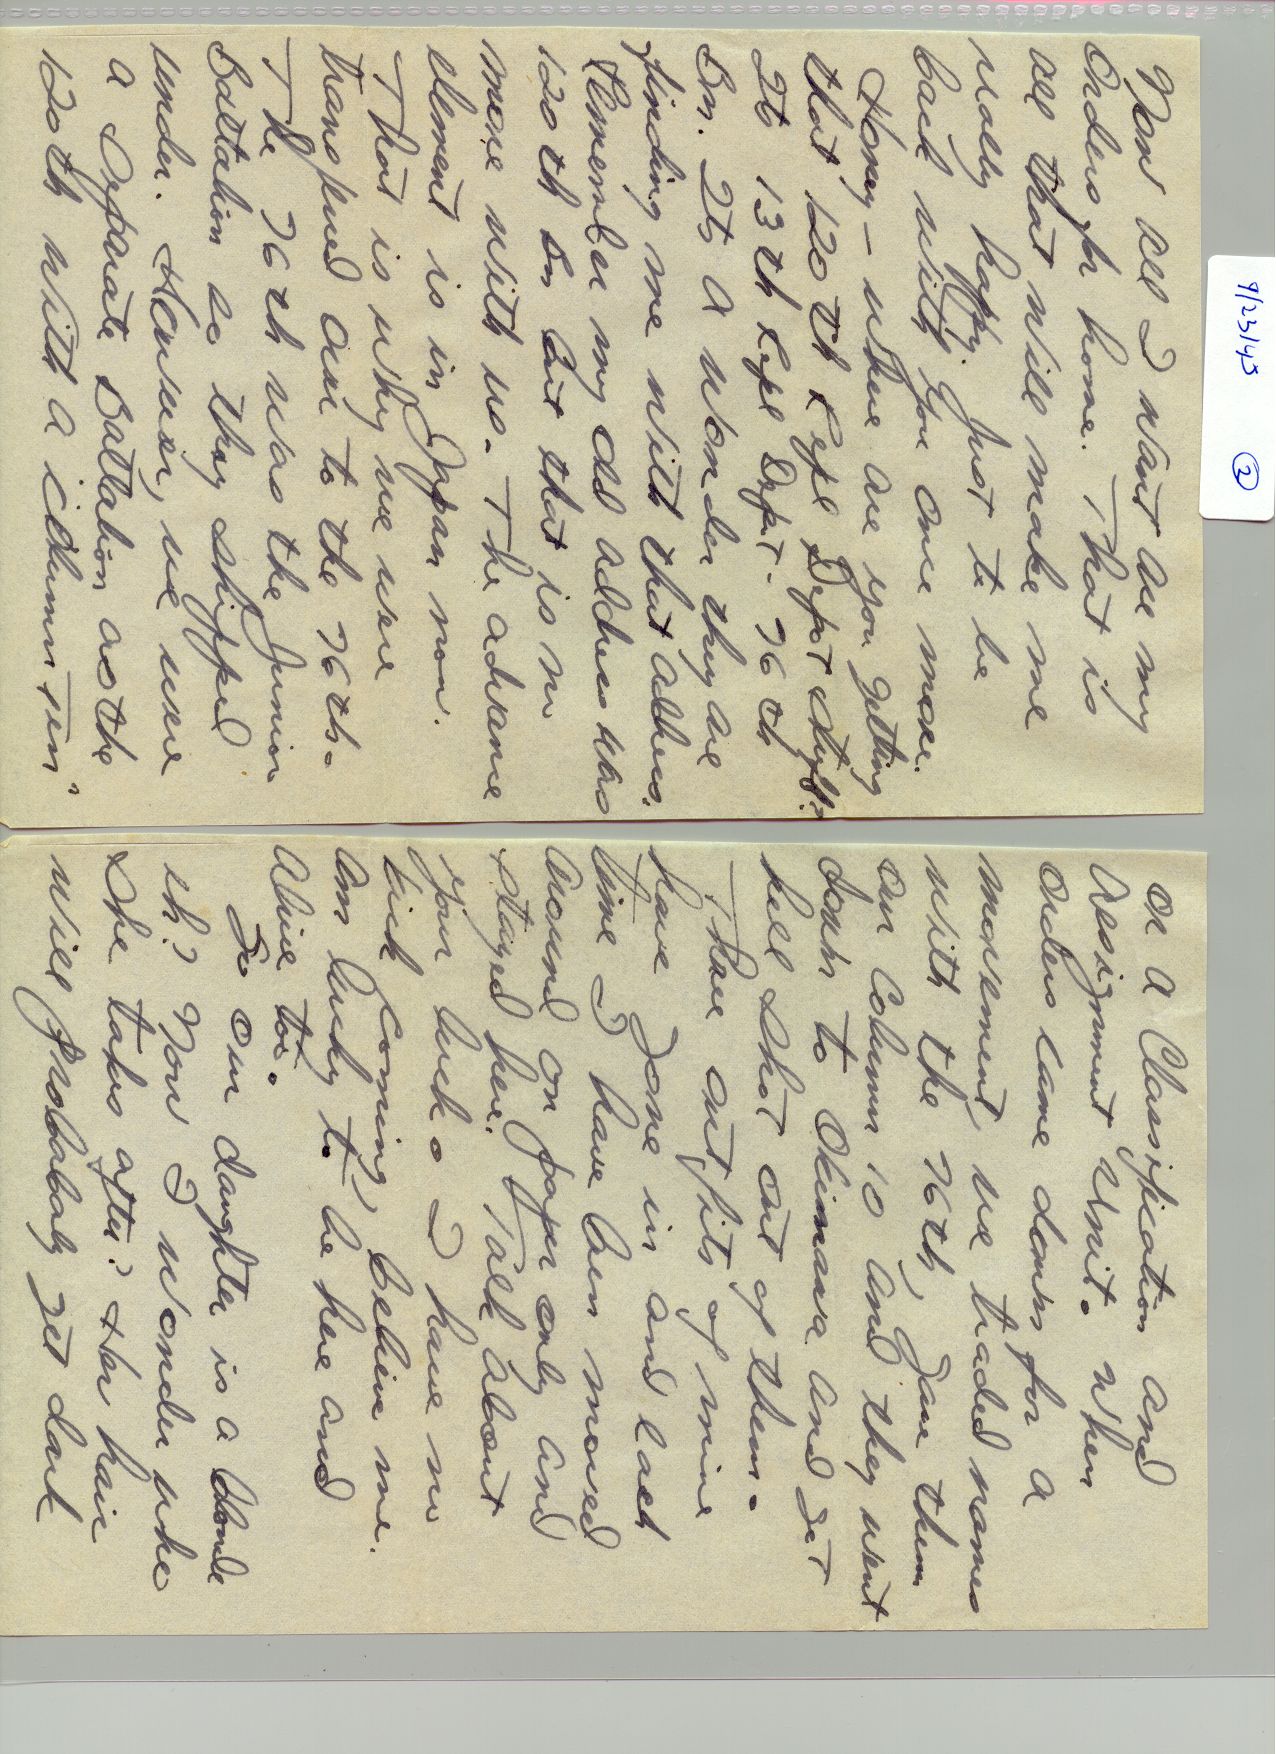 9/23/45 2
Now all I want are my
Orders for home. That is
all that will make me
really happy. Just to be
back with you once more.
Honey - where are you getting
that 120th Repl Depot stuff?
Its 13th Repl Depot - 76th
Bn. Its a wonder they are
finding me with that address.
Remember my old address was
120th Bn but that is no
more with us. The advance
element is in Japan now.
That is why we were
transfered over to the 76th.
The 76th was the Junior
Battalion so they shipped
under. However, we were
a Separate Battalion as the
120th with a "column Ten"
or a Classification and
Assignment Unit. When
orders came down for a
movement, we traded names
with the 76th, gave them
our Column 10 and they went
down to Okinawa and got
hell shot out of them.
Three outfits of mine
have gone in and each
time I have been moved
around on paper only and
stayed here. Talk about
your luck. I have no
kick coming, believe me.
Am lucky to be here and
alive too.
So our daughter is a blonde
eh? Now I wonder who
she takes after? Her hair
will probably get dark